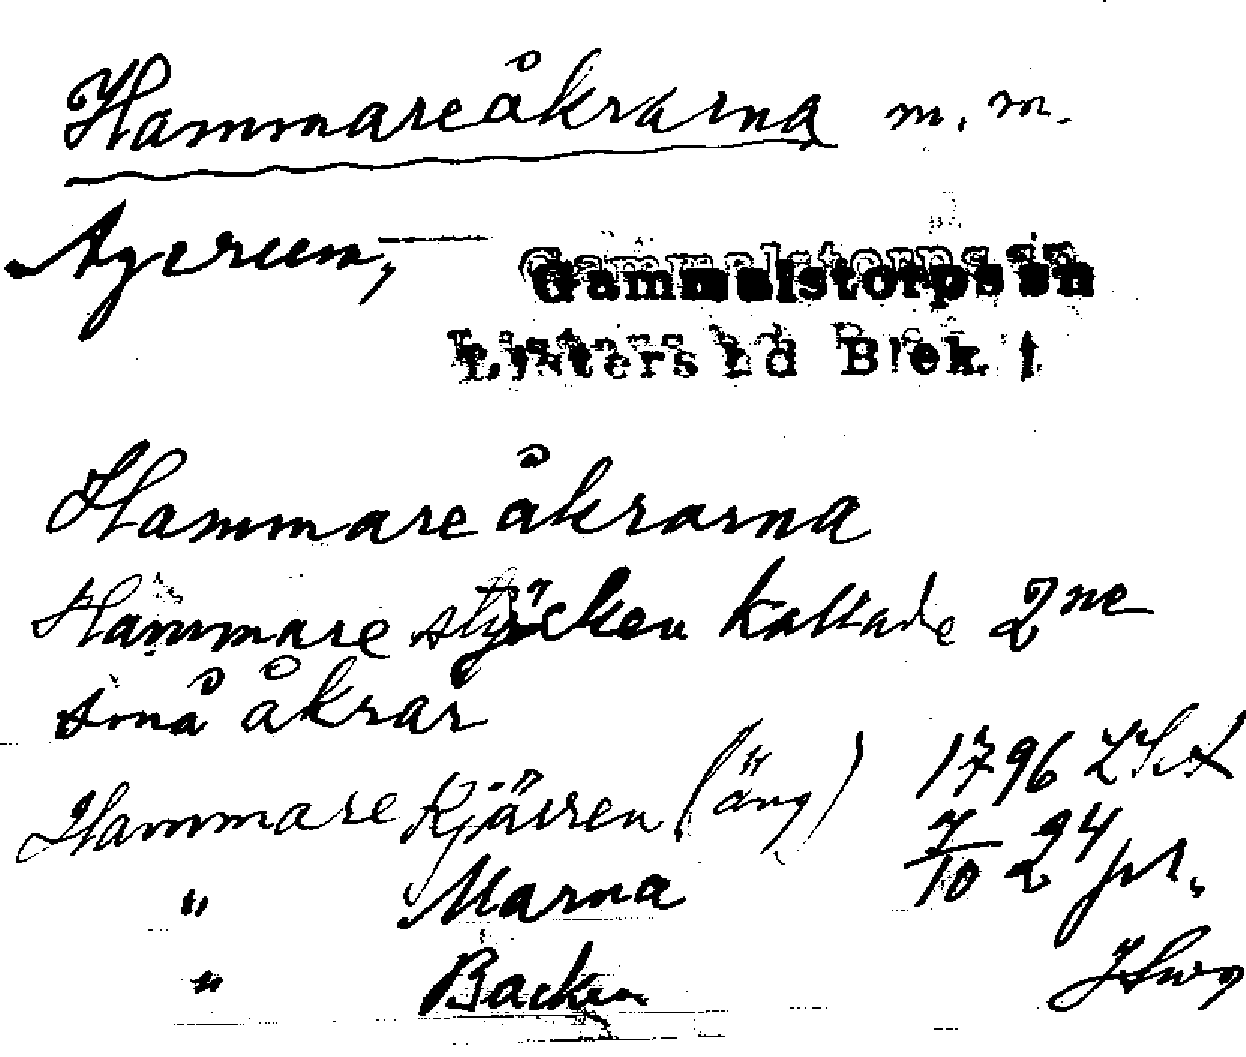 Hammareåkrarna m. m.
Agerum, Gammalstorps sn
Listers hd Blek. l
Hammareåkrarna
Hammare stycken kallade 2ne
små åkrar
Hammare Kjärren (äng) 1796
" Marna 7/10 24
" Backen